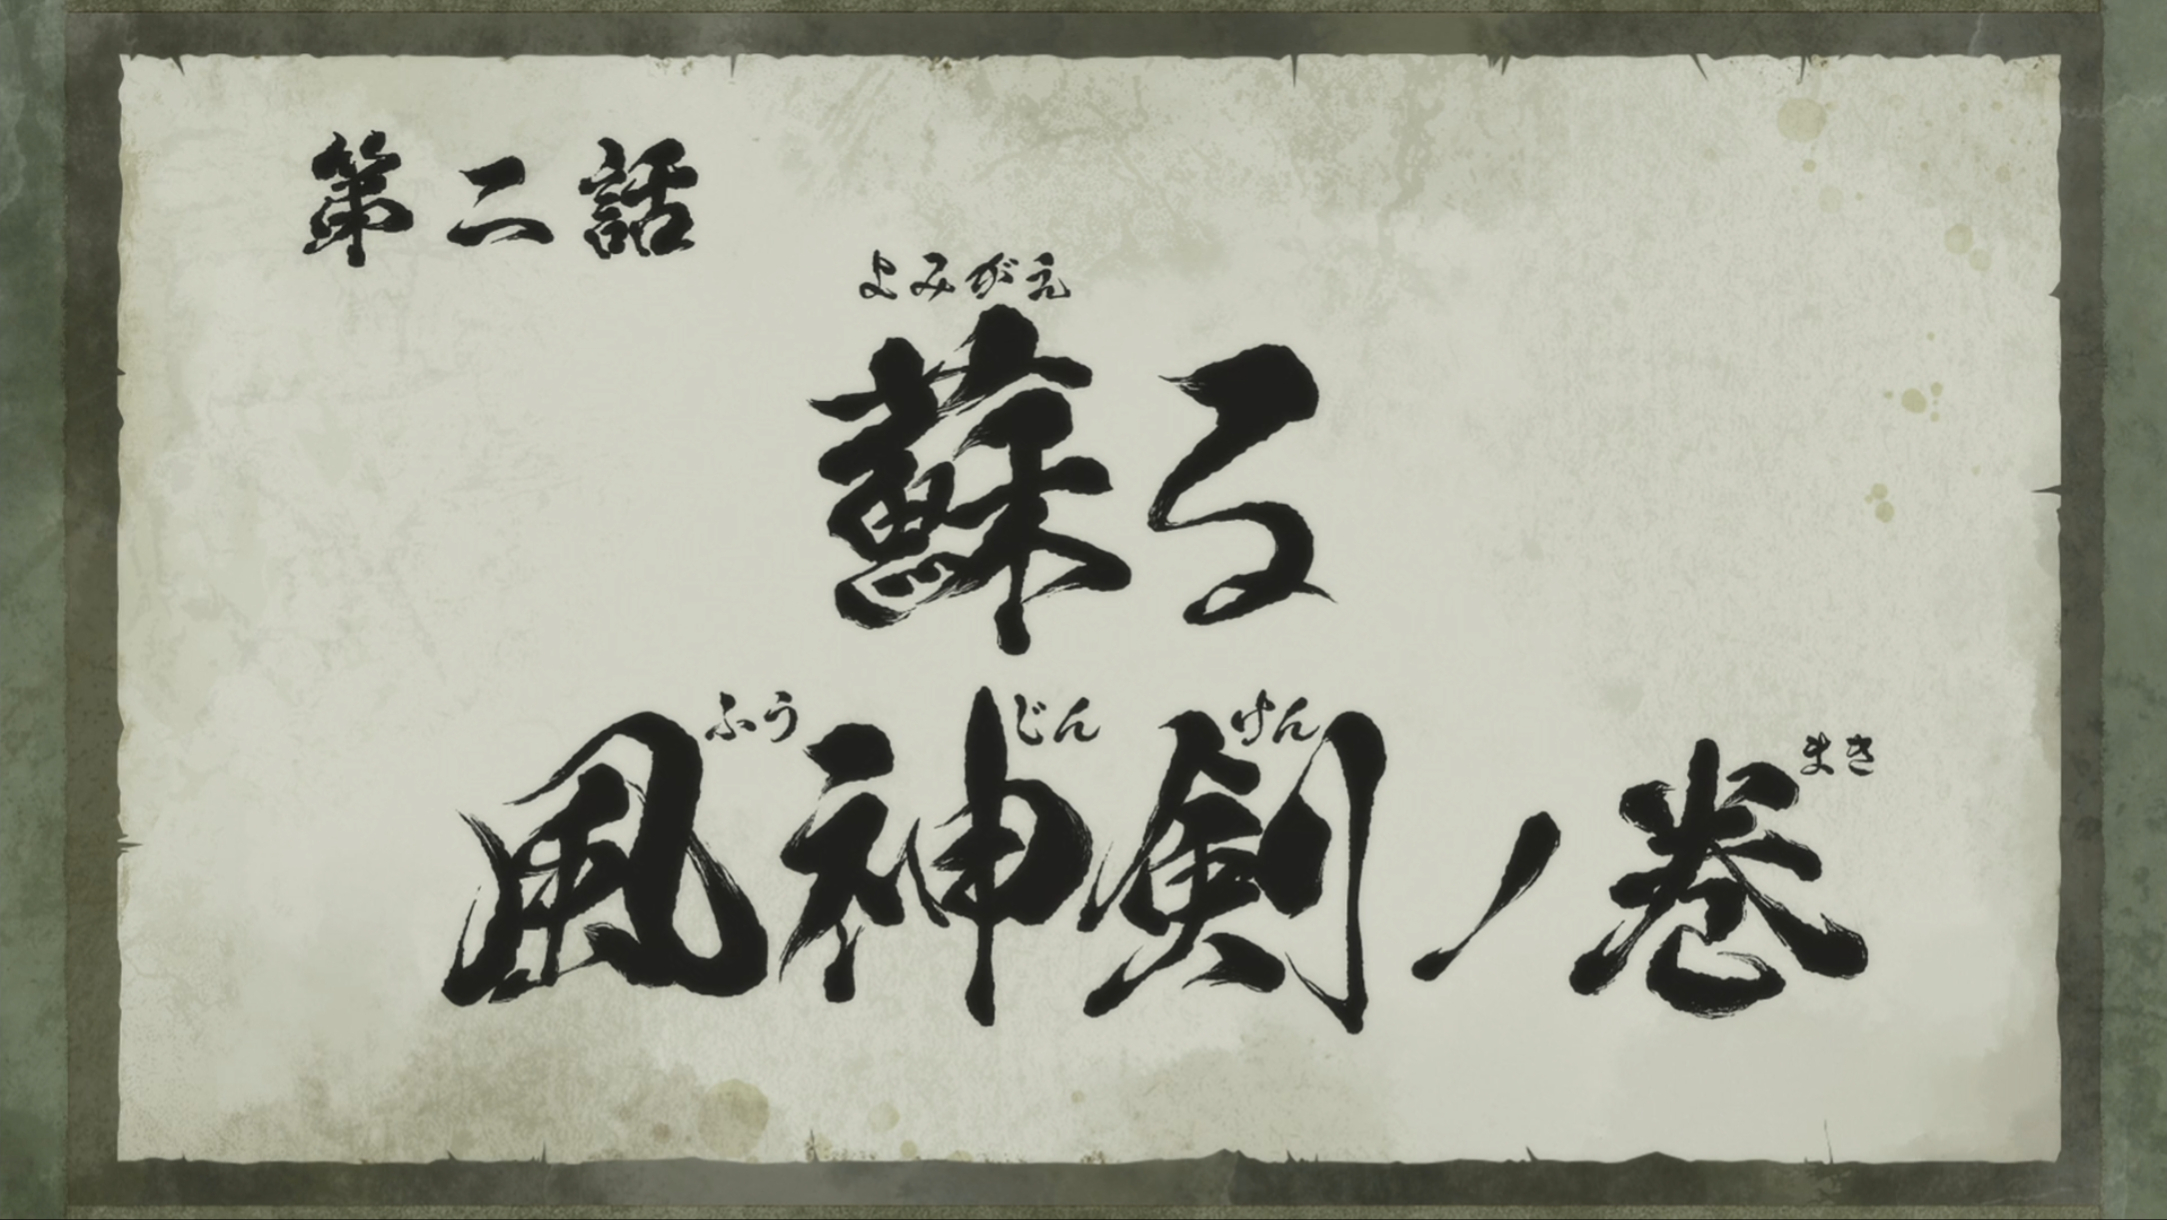 第二話
よみがえ
蘇る
ふう じん けん まき
風神剣ノ巻